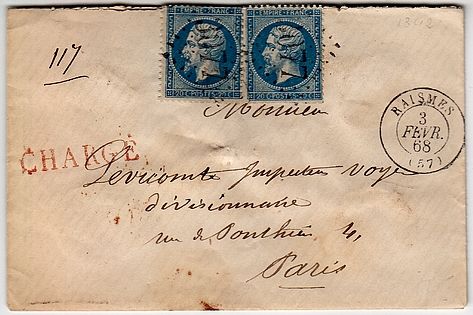 EMPIRE FRANC
EMPIRE FRANC
20 C POSTES 20 C
20 C POSTES 20 C
117
RAISMES
3
FEVR.
68
(57)
Monsieur
CHARGÉ
Levicomte Inspecteur Voyer
divisionnaire
rue de Ponthieu 4,
Paris